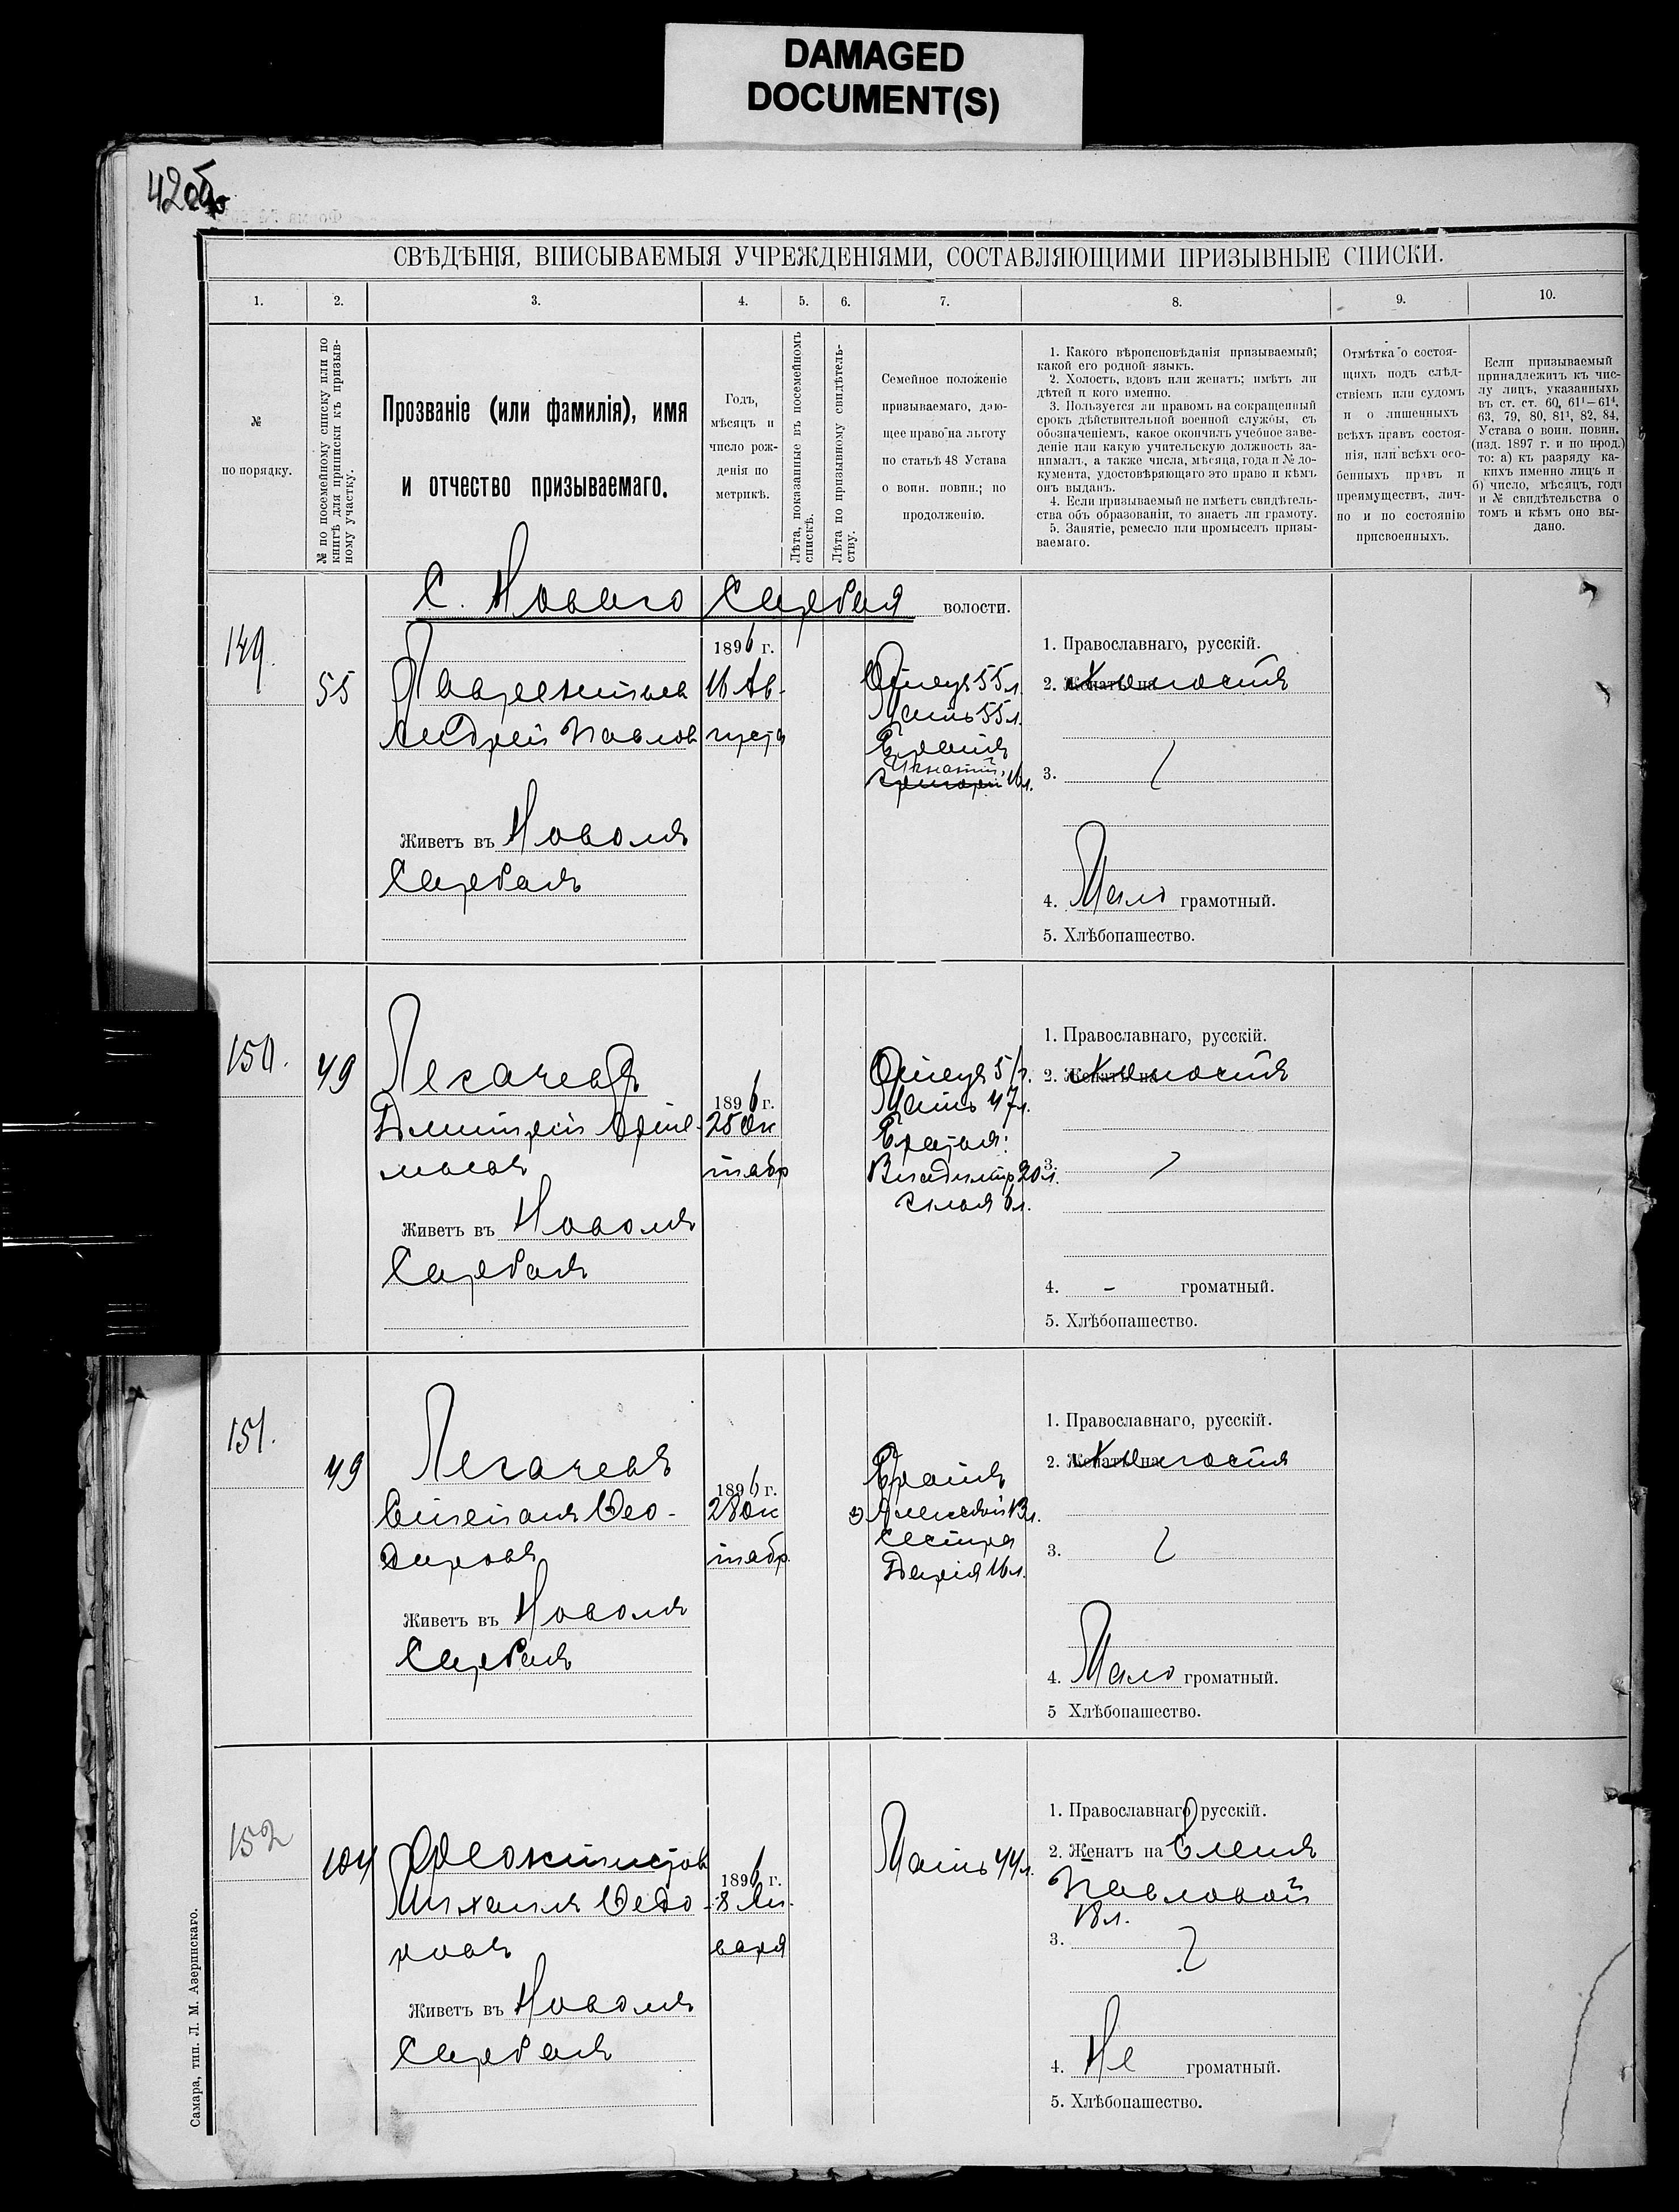 DAMAGED
DOCUMENT(S)
42об
СВѢДѢНІЯ, ВПИСЫВАЕМЫЯ УЧРЕЖДЕНІЯМИ, СОСТАВЛЯЮЩИМИ ПРИЗЫВНЫЕ СПИСКИ.
1. 2. 3. 4. 5. 6. 7. 8. 9. 10.
№
по порядку.
№ по посемейному списку или по
книгѣ для приписки къ призыв-
ному участку.
Прозваніе (или фамилія), имя
и отчество призываемаго.
Годъ,
мѣсяцъ и
число рож-
денія по
метрикѣ.
Лѣта, показанные въ посемейномъ
спискѣ.
Лѣта по призывному свидѣтель-
ству.
Семейное положеніе
призываемаго, даю-
щее право на льготу
по статьѣ 48 Устава
о воин. повин.; по
продолженію.
1. Какого вѣроисповѣданія призываемый;
какой его родной языкъ.
2. Холостъ, вдовъ или женатъ; имѣтъ ли
дѣтей и кого именно.
3. Пользуется ли правомъ на сокращенный
срокъ дѣйствительной военной службы, съ
обозначеніемъ, какое окончилъ учебное заве-
деніе или какую учительскую должность за-
нималъ, а также числа, мѣсяца, года и № до-
кумента, удостовѣряющаго это право и кѣмъ
онъ выданъ.
4. Если призываемый не имѣетъ свидѣтель-
ства объ образованіи, то знаетъ ли грамоту.
5. Занятіе, ремесло или промыселъ призы-
ваемаго.
Отмѣтка о состоя-
щихъ подъ слѣд-
ствіемъ или судомъ
и о лишенныхъ
всѣхъ правъ состоя-
нія, или всѣхъ осо-
бенныхъ правъ и
преимуществъ, лич-
но и по состоянію
присвоенныхъ.
Если призываемый
принадлежитъ къ чис-
лу лицъ, указанныхъ
въ ст. ст. 60, 61¹—61⁴,
63, 79, 80, 81¹, 82, 84,
Устава о воин. повин.
(изд. 1897 г. и по прод.)
то: а) къ разряду ка-
кихъ именно лицъ и
б) число, мѣсяцъ, годъ
и № свидѣтельства о
томъ и кѣмъ оно вы-
дано.
С. Новаго Сарбая волости.
149.
55
Лаврентьев
Андрей Павлов
Живетъ въ Новомъ
Сарбаѣ
1896 г.
16 Ав-
густа
Отецъ 55 л.
Мать 55 л.
Братъ
Игнатій,
Григорій 16 л.
1. Православнаго, русскій.
2. Женатъ на Холостъ
3.
4. Мало грамотный.
5. Хлѣбопашество.
150.
49
Легачевъ
Дмитрій Арте-
мьевъ
Живетъ въ Новомъ
Сарбаѣ
1896 г.
25 Ок
тябр
Отецъ 51 г.
Мать 47 л.
Братья:
Владиміръ 20 л.
Илья 6 л.
1. Православнаго, русскій.
2. Женатъ на Холостъ
3.
4. - громатный.
5. Хлѣбопашество.
151.
49
Легачевъ
Степанъ Ѳео-
доровъ
Живетъ въ Новомъ
Сарбаѣ
1896 г.
28 Ок
тябр
Братъ
Алексѣй 13 л.
Сестра
Дарія 16 л.
1. Православнаго, русскій.
2. Женатъ на Холостъ
3.
4. Мало громатный.
5 Хлѣбопашество.
152
104
Феоктистовъ
Михаилъ Ѳедо-
ровъ
Живетъ въ Новомъ
Сарбаѣ
1896 г.
8 Ян-
варя
Мать 44 л.
1. Православнаго русскій.
2. Женатъ на Еленѣ
Павловой
18 л.
3.
4. Не громатный.
5. Хлѣбопашество.
Самара, тип. Л. М. Азеринскаго.